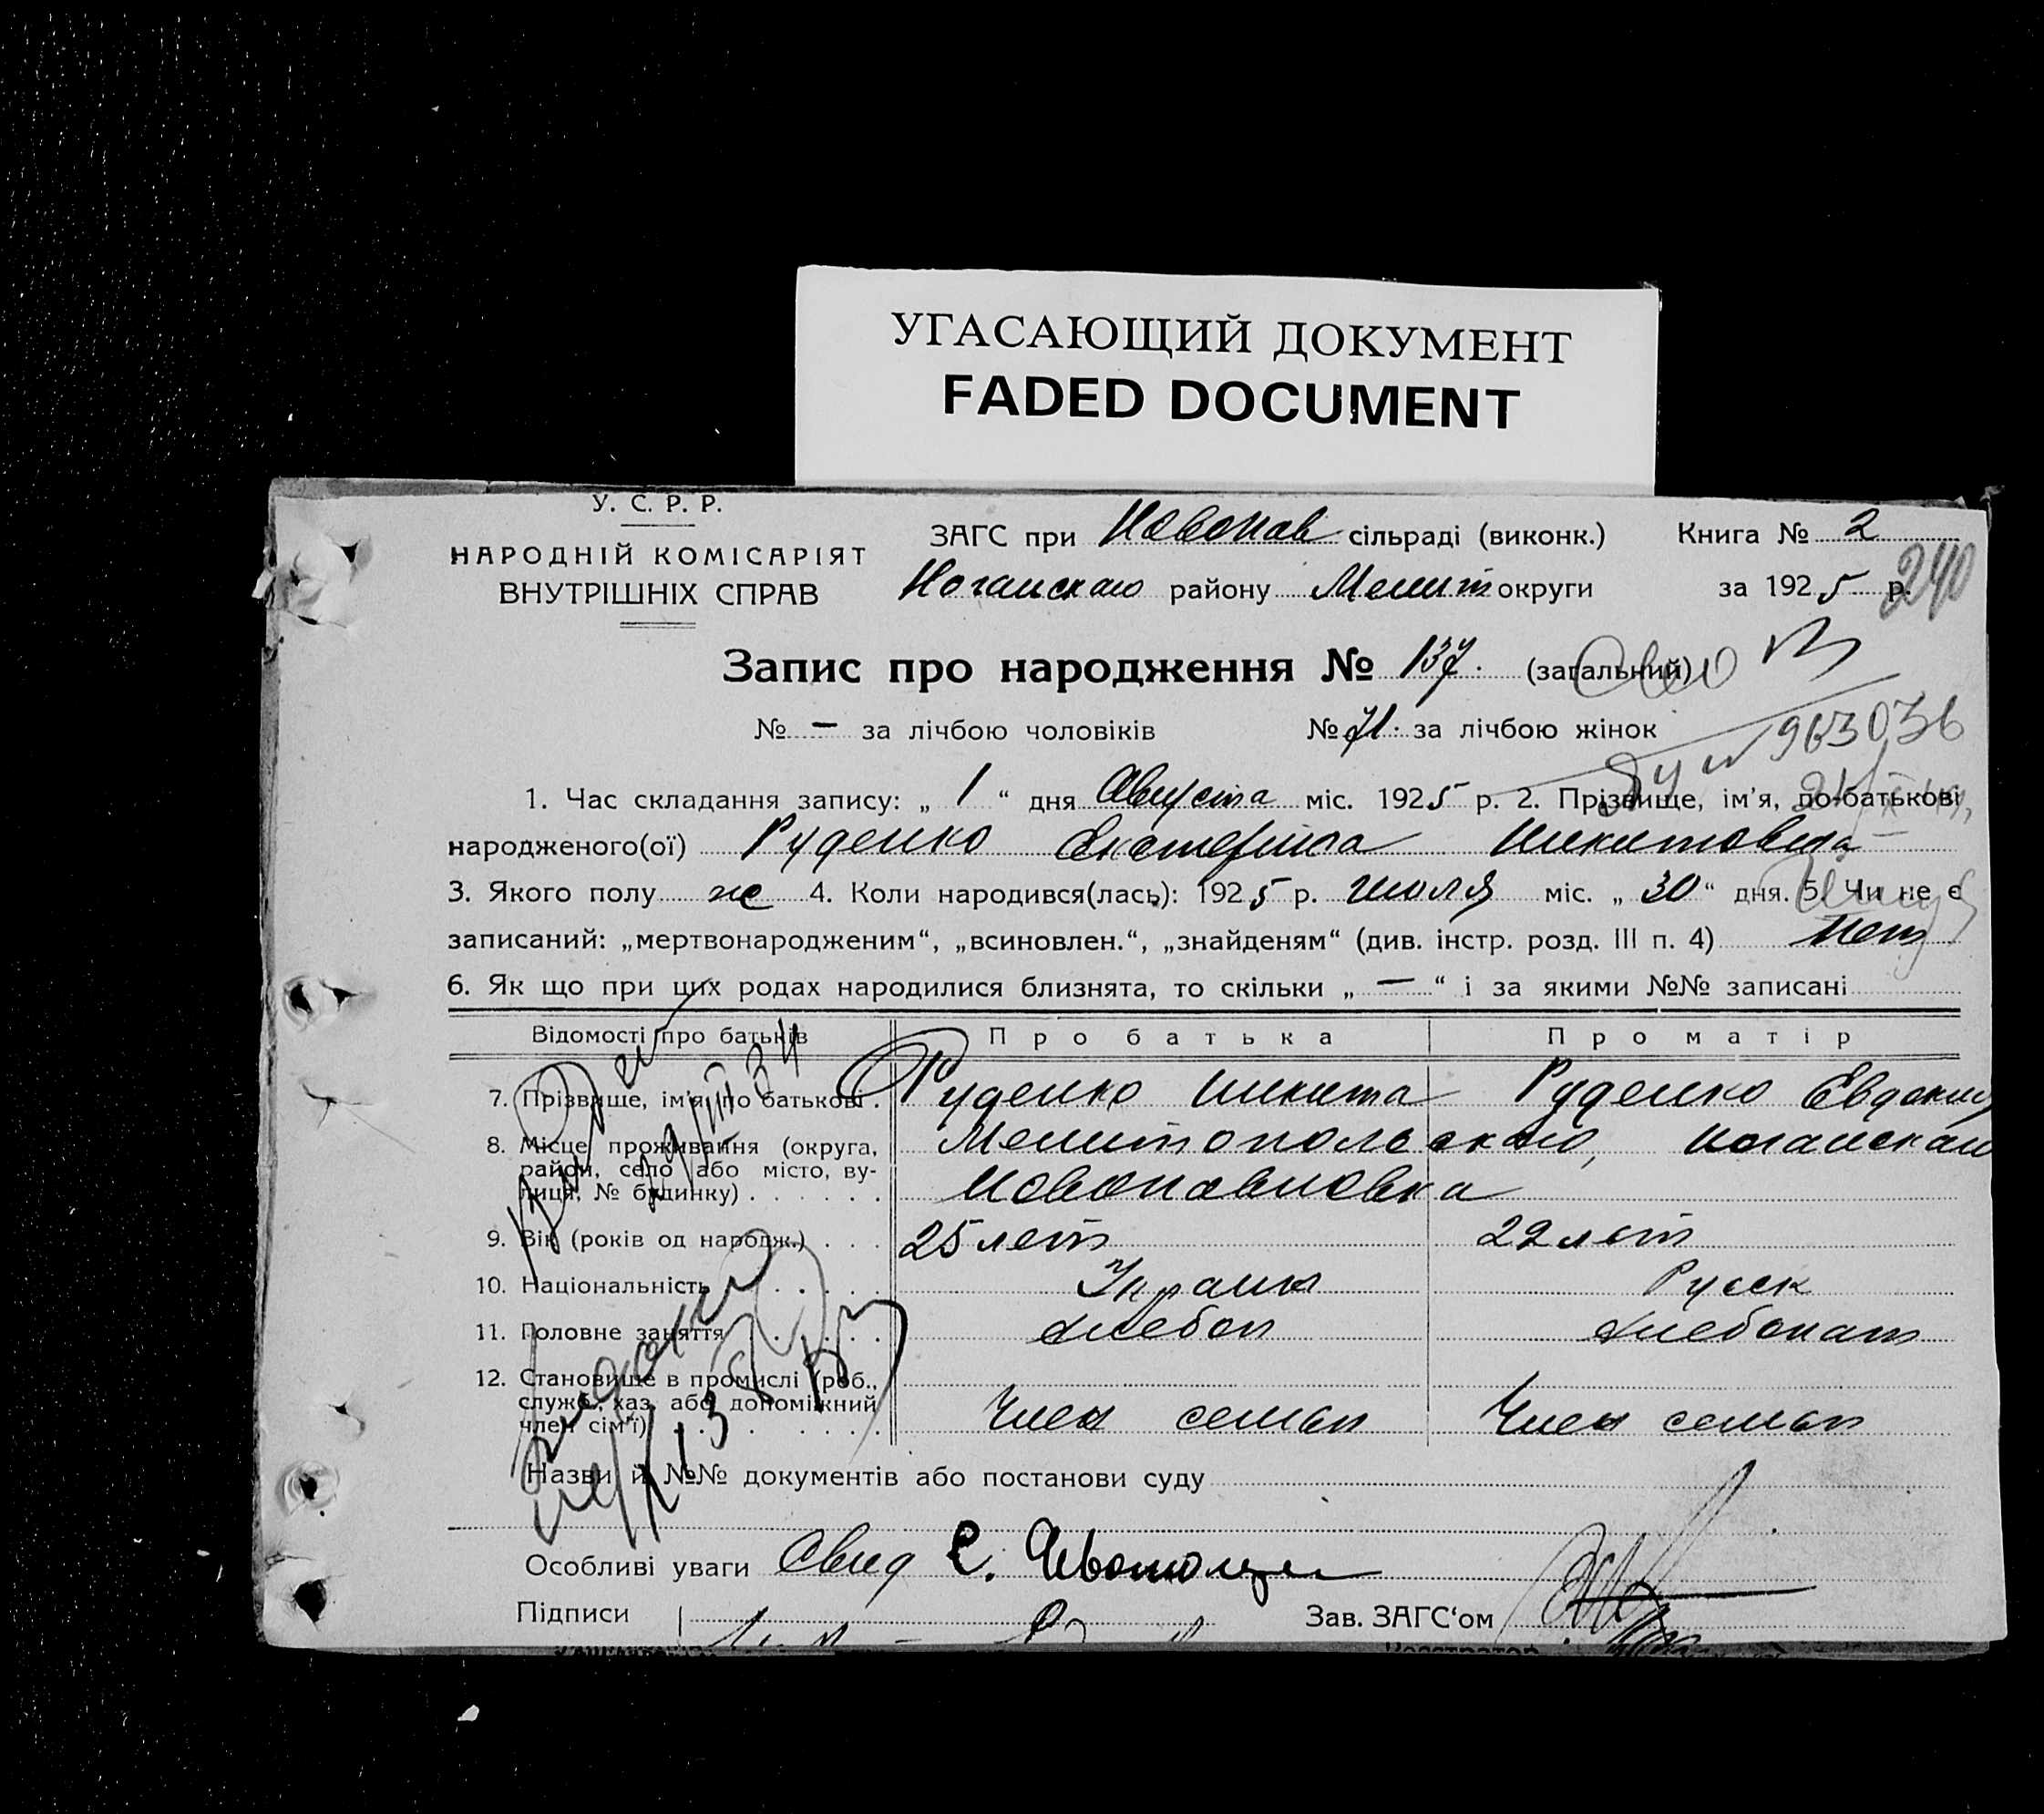 УГАСАЮЩИЙ ДОКУМЕНТ
FADED DOCUMENT
У. С. Р. Р.
НАРОДНІЙ КОМІСАРІЯТ
ВНУТРІШНІХ СПРАВ
ЗАГС при Новопав сільраді (виконк.) Книга № 2
Ногайскаго району Мелит округи за 1925 р.
240
Запис про народження № 137. (загальний)
№ — за лічбою чоловіків № 71. за лічбою жінок
963036
1. Час складання запису: „ 1 “ дня Августа міс. 1925 р. 2. Прізвище, ім’я, по-батькові
народженого(ої) Руденко Екатерина Никитовна
3. Якого полу же 4. Коли народився(лась): 1925 р. июля міс. „ 30 “ дня. 5. Чи не є
записаний: „мертвонародженим“, „всиновлен.“, „знайденям“ (див. інстр. розд. III п. 4) Нет
6. Як що при цих родах народилися близнята, то скільки „ — “ і за якими №№ записані
Відомості про батьків Про батька Про матір
7. Прізвище, ім’я, по батькові . Руденко Никита Руденко Евдокия
8. Місце проживання (округа, район, село або місто, вулиця, № будинку) Мелитопольскаго, Ногайскаго
Новопавловка
9. Вік (років од народж.) 25 лет 22 лет
10. Національність Украин Русск
11. Головне заняття хлебоп хлебопаш
12. Становище в промислі (роб.,
служб., хаз. або допоміжний
член сім’ї) Член семьи Член семьи
Назви й №№ документів або постанови суду
Особливі уваги Свид Е.
Підписи Зав. ЗАГС‘ом